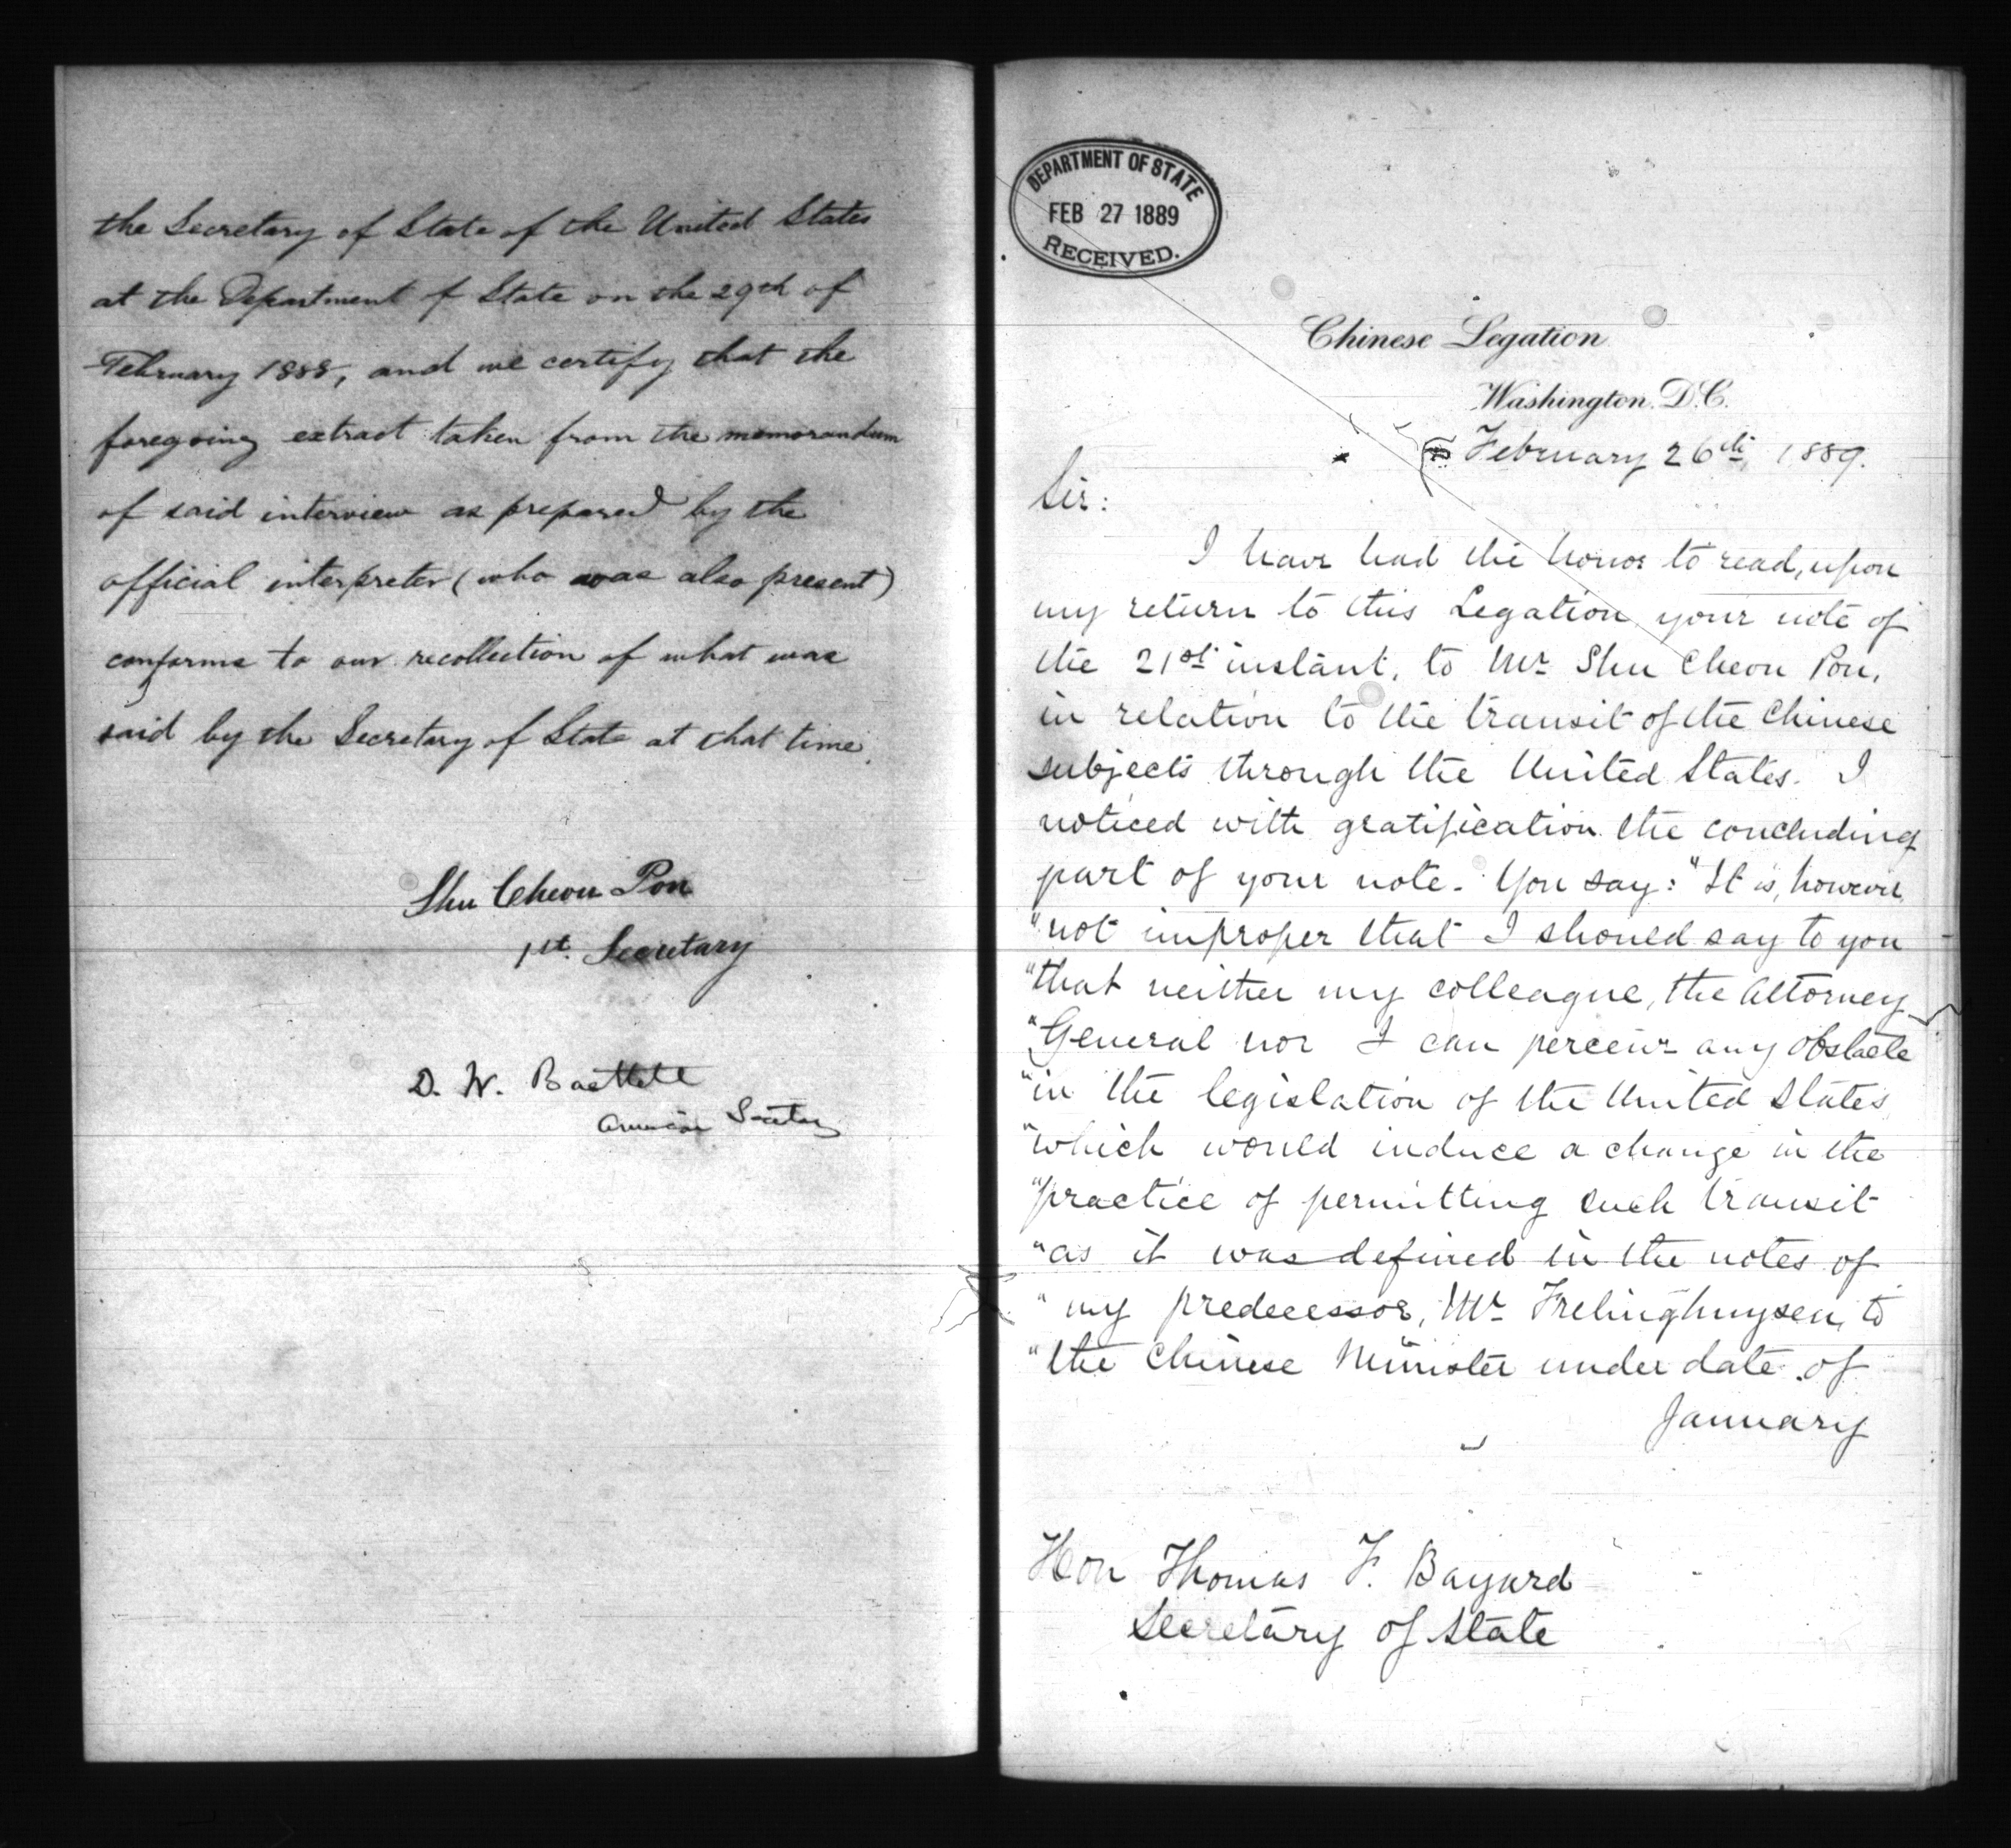 the Secretary of State of the United States
at the Department of State on the 29th of
February 1888, and we certify that the
foregoing extract taken from the memorandum
of said interview as prepared by the
official interpreter (who was also present)
conforms to our recollection of what was
said by the Secretary of State at that time.
Shu Cheon Pon
1st. Secretary
D. W. Bartlett
American Secretary
DEPARTMENT OF STATE
FEB 27 1889
RECEIVED.
Chinese Legation
Washington. D.C.
February 26th, 1889.
Sir:
I have had the honor to read, upon
my return to this Legation, your note of
the 21st instant, to Mr Shu Cheon Pon,
in relation to the transit of the Chinese
subjects through the United States. I
noticed with gratification the concluding
part of your note. You say: "It is, however
"not improper that I should say to you
"that neither my colleague, the Attorney
"General nor I can perceive any obstacle
"in the legislation of the United States
"which would induce a change in the
"practice of permitting such transit
"as it was defined in the notes of
"my predecessor, Mr Frelinghuysen, to
"the Chinese Minister under date of
January
Hon Thomas F. Bayard
Secretary of State